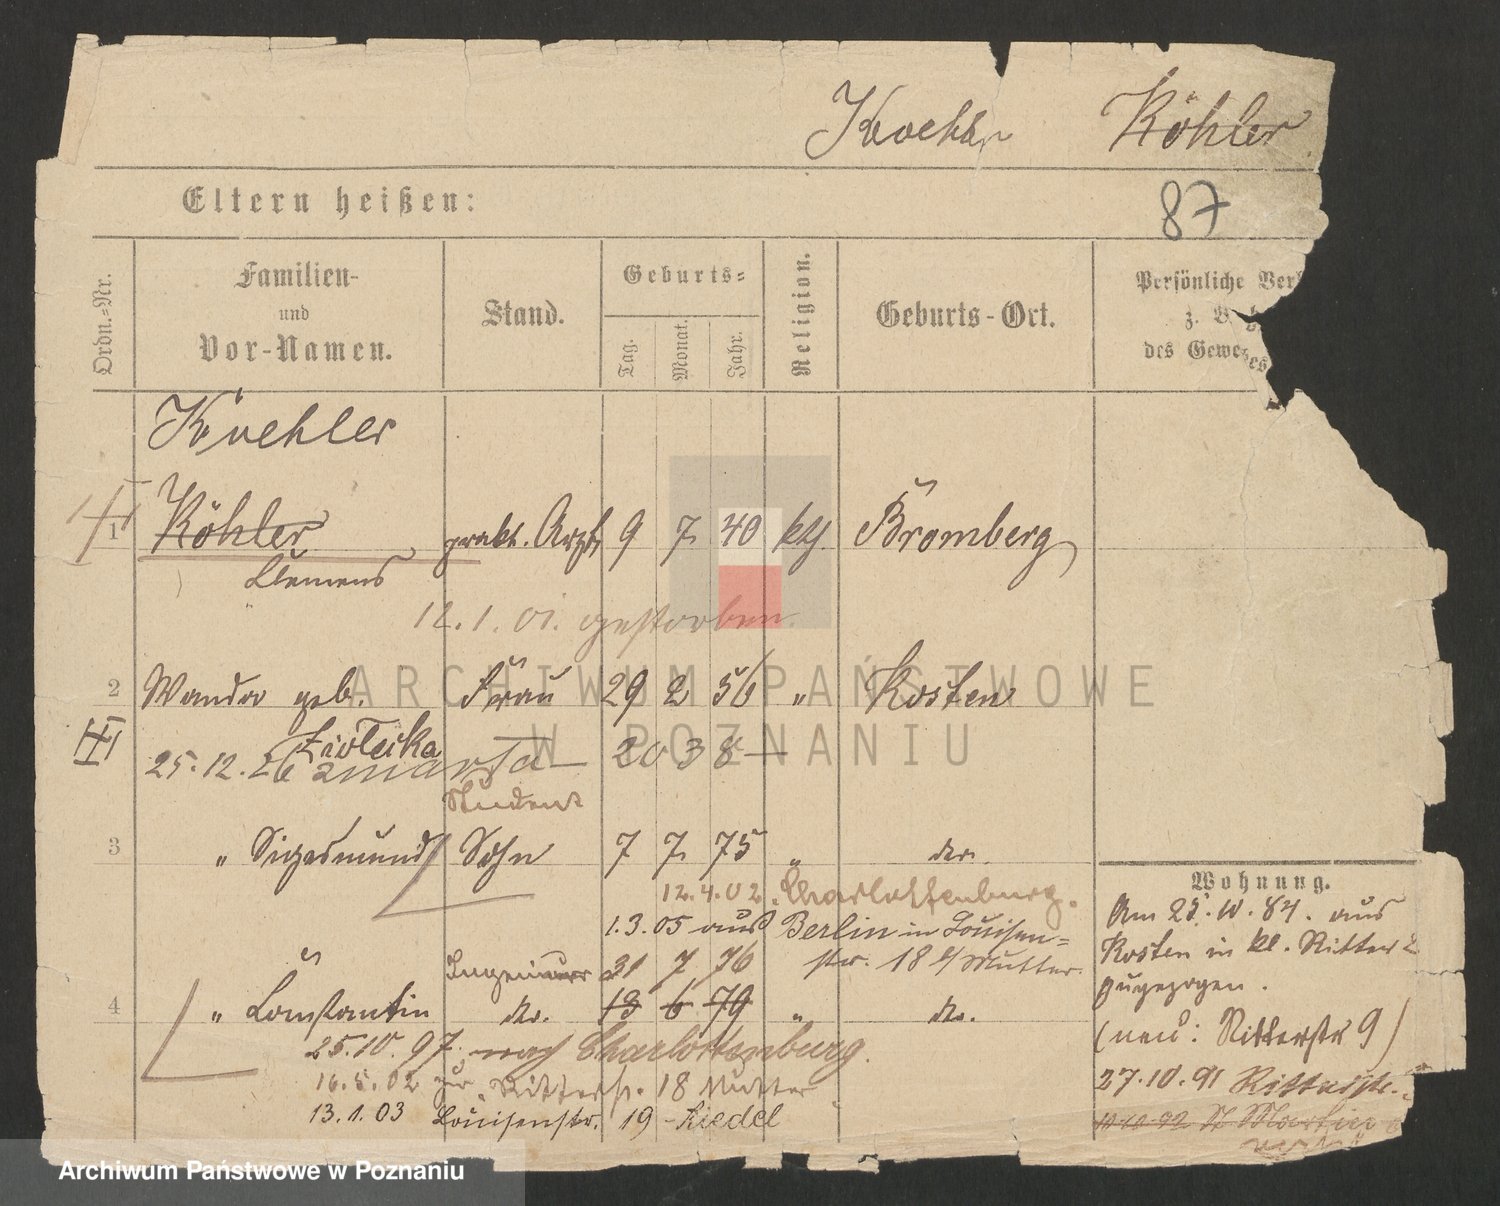 Koehler Köhler
Eltern heißen:
87
Ordn.-Nr.
Familien-
und
Vor-Namen.
Stand.
Geburts-
Tag.
Monat.
Jahr.
Religion.
Geburts-Ort.
Persönliche Ver
z. B
des Gewerbes
Koehler
1 Köhler prakt. Arzt 9 7 40 kth. Bromberg
Clemens
12.1.01. gestorben.
2 Wanda geb. Frau 29 2 56 " Kosten
Ziółecka
25.12.26 zmarła — 2038 —
Student
3 " Sigesmund Sohn 7 7 75 " do.
12.4.02. Charlottenburg.
1.3.05 aus Berlin in Louisen-
str. 18 Mutter.
Ingenieur 31 7 76
4 " Constantin do. 13 6 79 " do.
25.10.97. nach Charlottenburg.
16.5.02 zur Ritterstr. 18 Mutter
13.1.03 Louisenstr. 19 - Riedel
Wohnung.
Am 25.10.84. aus
Kosten in kl. Ritter 2
zugezogen.
(neu: Ritterstr 9)
27.10.91 Ritterstr.
10.10.92 St Martin
ARCHIWUM PAŃSTWOWE
W POZNANIU
Archiwum Państwowe w Poznaniu